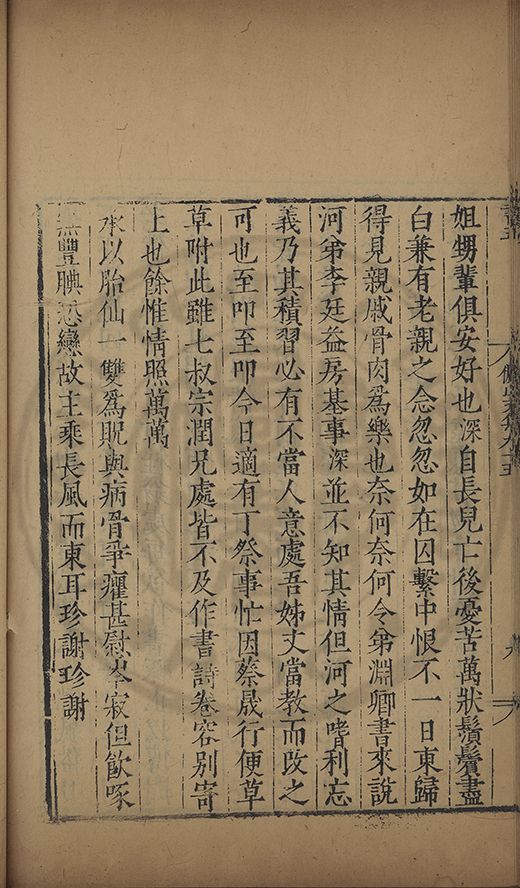 姐甥輩俱安好也深自長兒亡後憂苦萬狀鬚鬢盡
白兼有老親之念忽忽如在囚繫中恨不一日東歸
得見親戚骨肉爲樂也奈何奈何令弟淵卿書來說
河弟李廷益房墓事深並不知其情但河之嗜利忘
義乃其積習必有不當人意處吾姊丈當教而改之
可也至叩至叩今日適有丁祭事忙因蔡晟行便草
草附此雖七叔宗潤兄處皆不及作書詩卷容別寄
上也餘惟情照萬萬
承以胎仙一雙爲貺與病骨爭癯甚慰岑寂但飲啄
豐腆恐戀故主乘長風而東耳珍謝珍謝